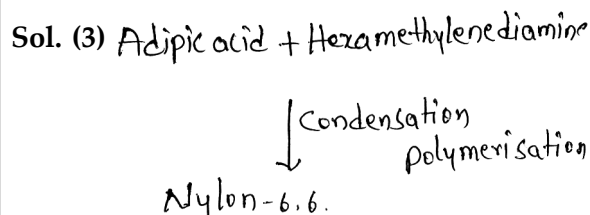 Sol. (3) Adipic acid + Hexamethylenediamine
Condensation
polymerisation
Nylon-6,6.